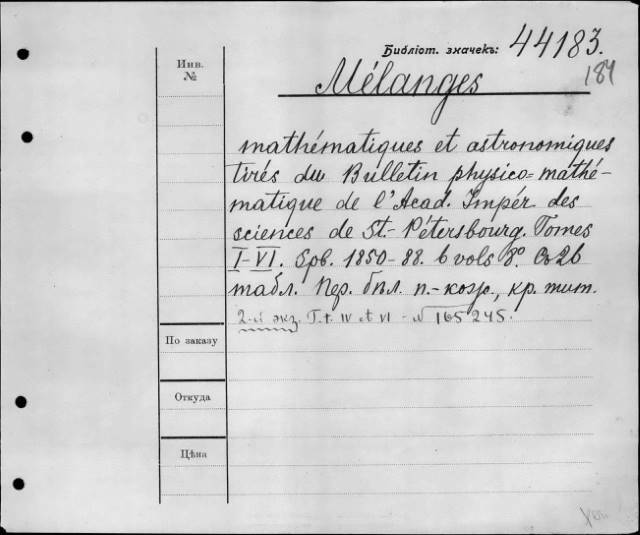 Библіот. значекъ: 44183.
184
Инв.
№
Mélanges
mathématiques et astronomiques
tirés du Bulletin physico=mathé-
matique de l'Acad. Impér. des
sciences de St.-Pétersbourg. Tomes
I-VI. Spb. 1850-88. 6 vols 8°. Съ 26
табл. Пер. бѣл. п.-кож., кр. тит.
2-й экз. T.t. IV et VI - № 165245.
По заказу
Откуда
Цѣна